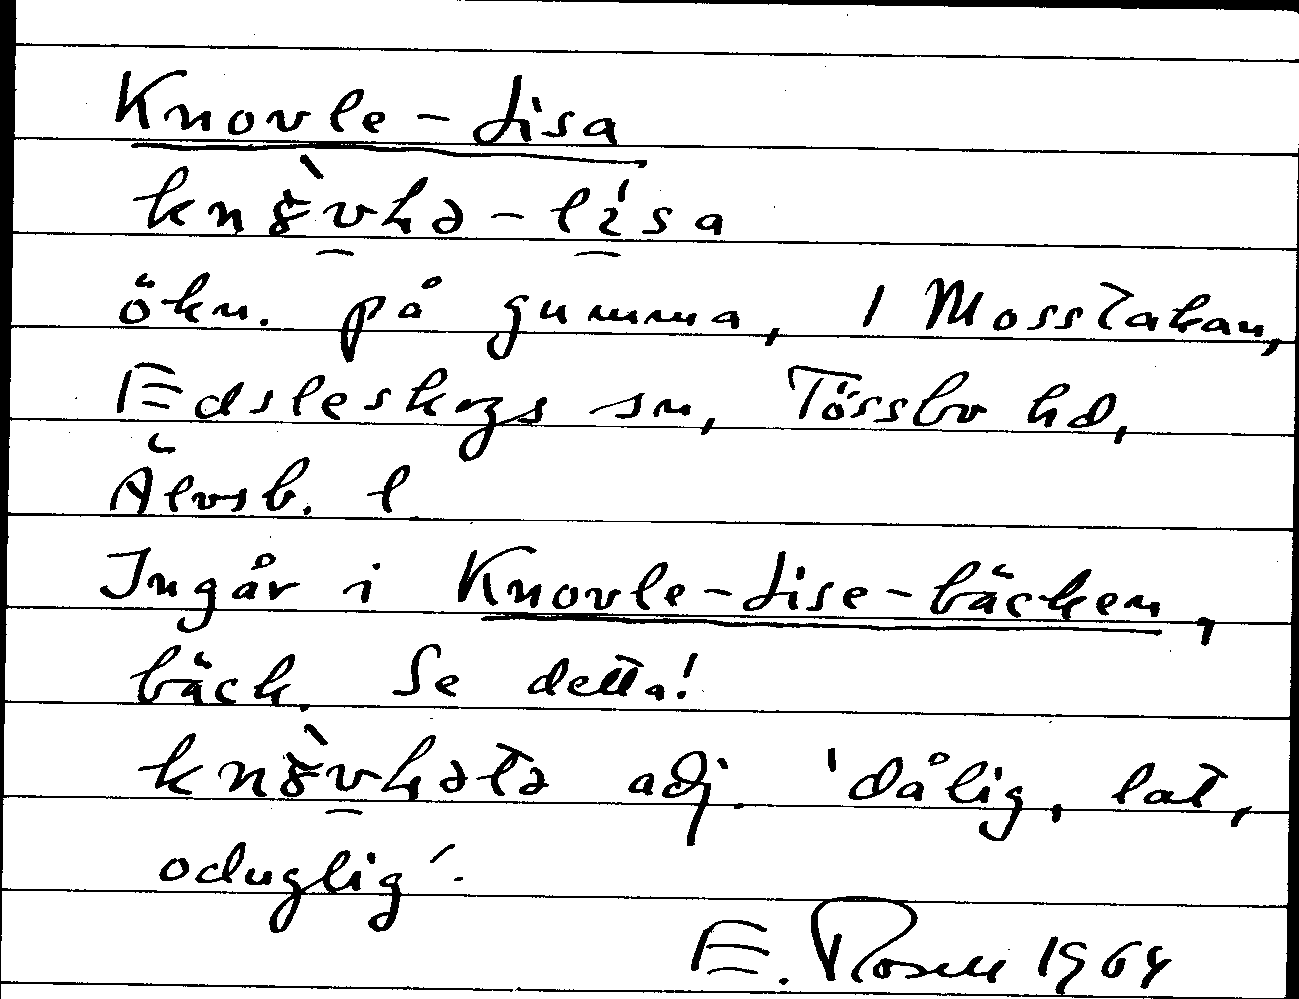 Knovle-Lisa
kn8̀vhə-lísa
ökn. på gumma, i Mosstakan,
Edsleskogs sn, Tössbo hd,
Älvsb. l
Ingår i Knovle-Lise-bäcken,
bäck. Se detta!
kn8̀vhətə adj. 'dålig, lat,
oduglig'.
E. Rosell 1964